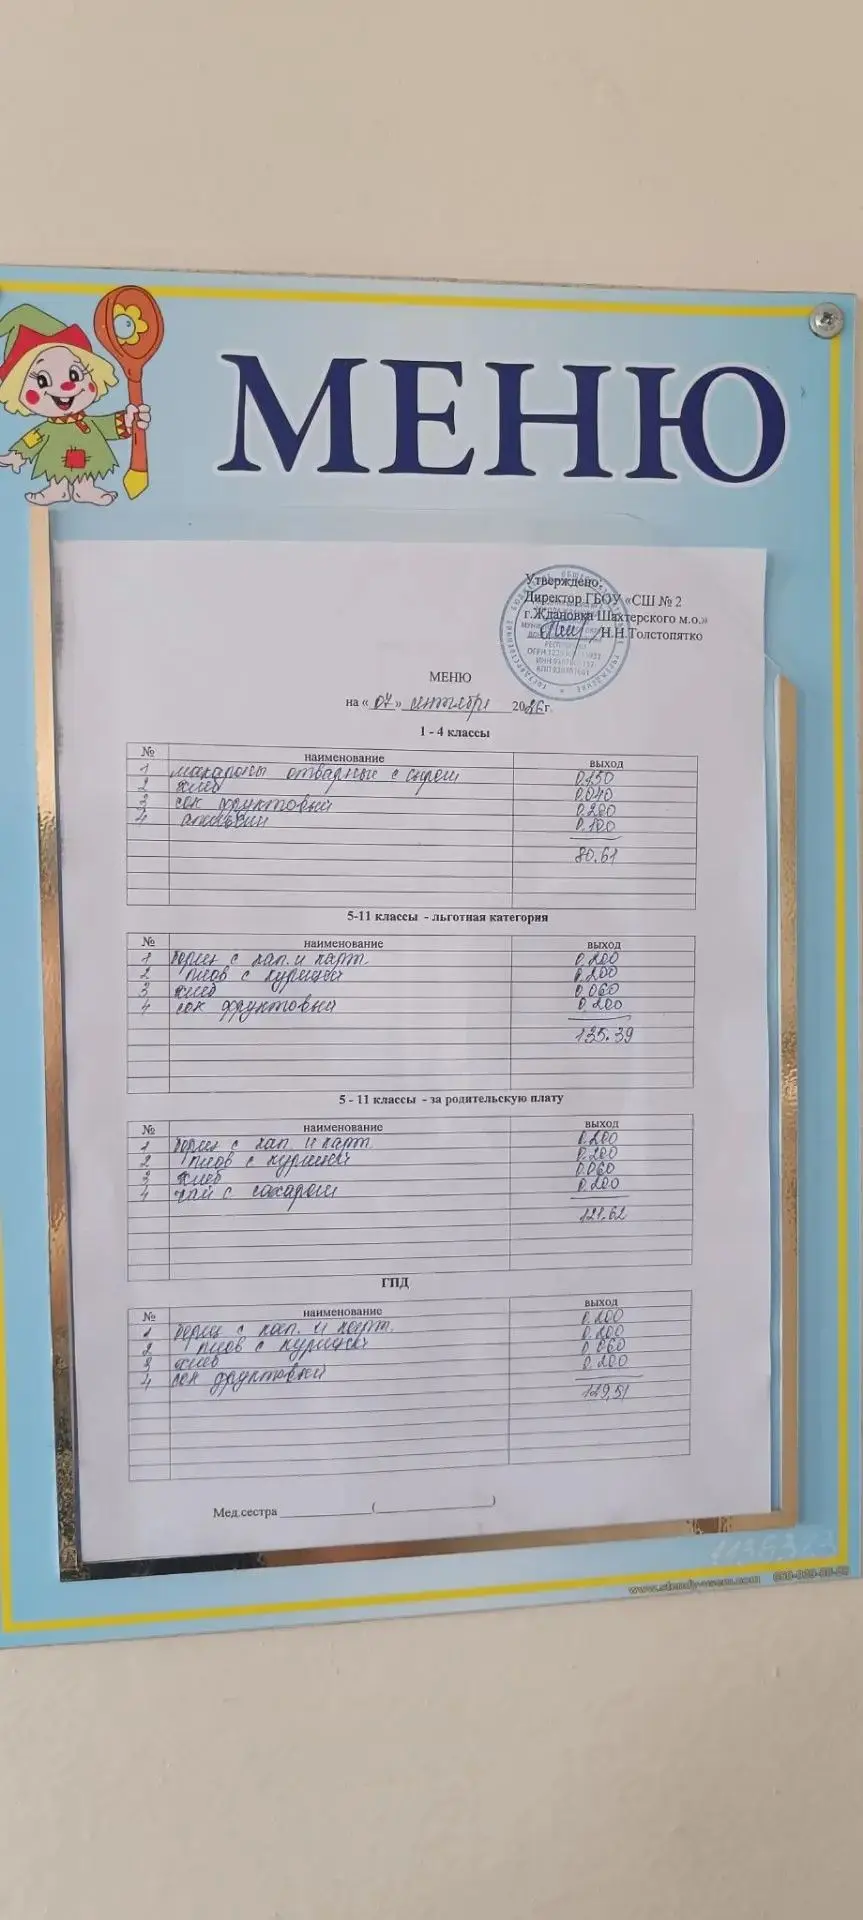 МЕНЮ
Утверждено:
Директор ГБОУ «СШ № 2
г.Ждановка Шахтерского м.о.»
Н.Н.Толстопятко
МЕНЮ
на « 07 » сентября 2026г.
1 - 4 классы
№ наименование выход
1 макароны отварные с сыром 0.150
2 хлеб 0.040
3 сок фруктовый 0.200
4 апельсин 0.100
80.61
5-11 классы - льготная категория
№ наименование выход
1 борщ с кап. и карт. 0.200
2 плов с курицей 0.200
3 хлеб 0.060
4 сок фруктовый 0.200
135.39
5 - 11 классы - за родительскую плату
№ наименование выход
1 борщ с кап. и карт. 0.200
2 плов с курицей 0.200
3 хлеб 0.060
4 чай с сахаром 0.200
121.62
ГПД
№ наименование выход
1 борщ с кап. и карт. 0.200
2 плов с курицей 0.200
3 хлеб 0.060
4 сок фруктовый 0.200
129,51
Мед.сестра ____________(____________________)